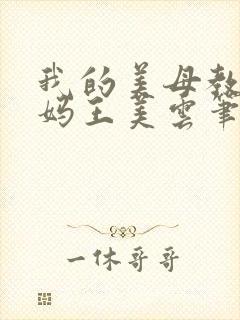 我的美母教
妈王美云筆
一休哥哥